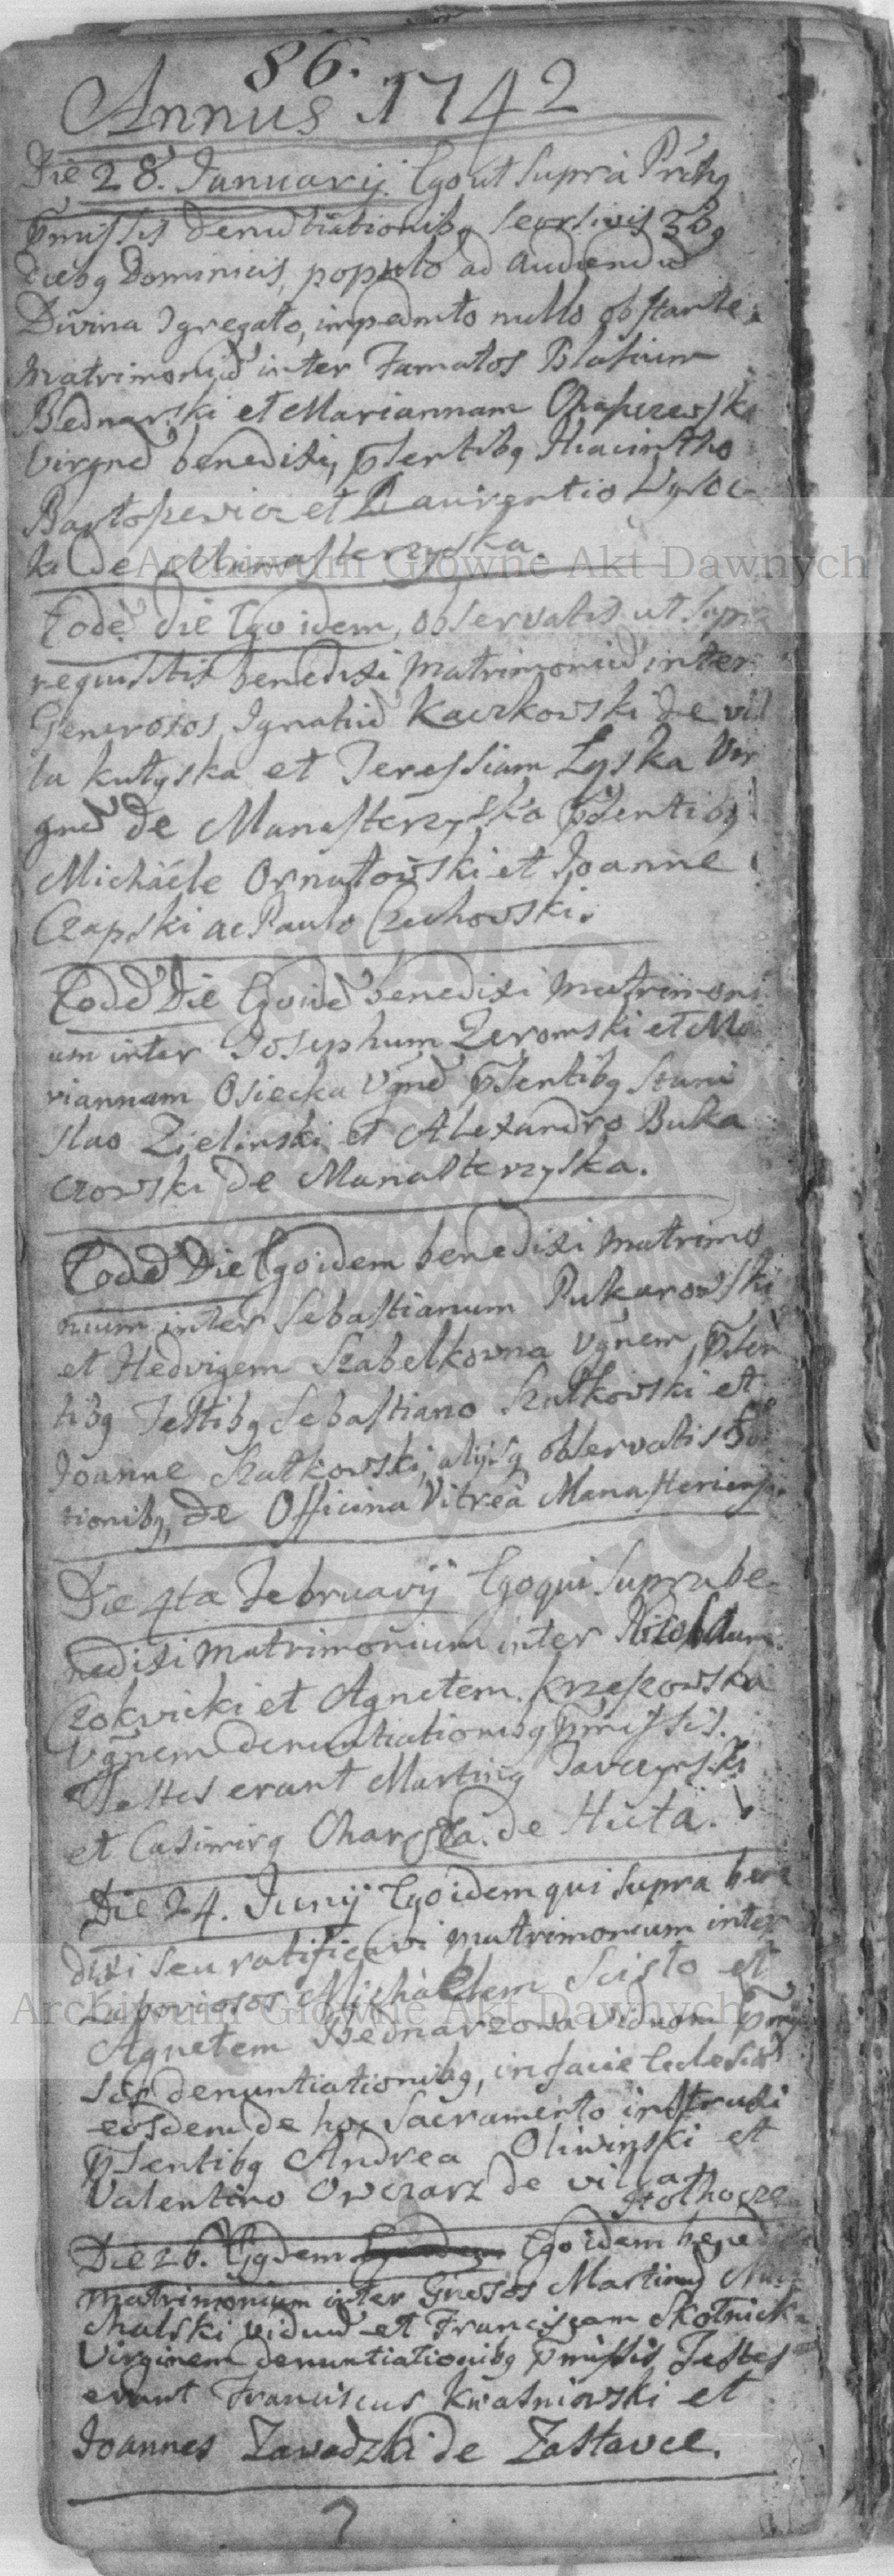 86.
Annus 1742
Die 28. Januarij. Ego ut supra
p̄missis denu͠tiationibq seorsivis 3bq
diebq Dominicis, populo ad audiendu͠
Divina 9gregato, impedm̃to nullo obstante
Matrimoniu͠ inter Famatos Blasium
Bednarski et Mariannam
Virgne͠ benedixi, p̄sentibq Hiacintho
Bartoszevicz et Laurentio Wysoc
ki de Manasterzyska.
Eode͠ die Ego idem, observatis ut supr
requisitis benedixi Matrimoniu͠ inter
Generosos Ignatiu͠ Kaczkowski de vil
la Kutyska et Teressiam Lyska Vir
gne͠ de Manasterzyska p̄sentibq
Michaele Ornatowski et Joanne
Czapski ac Paulo Czechowski.
Eode͠ Die Ego ide͠ benedixi Matrimoni
um inter Josephum Zeromski et Ma
riannam Osiecka Vgne͠ p̄sentibq Stani
slao Zielinski et Alexandro Buka
czowski de Manasterzyska.
Eode͠ Die Ego idem benedixi Matrimo
nium inter Sebastianum Pukarowski
et Hedvigem Szabelkowna Vgnem, p̄sen
tibq Testibq Sebastiano Szatkowski et
Joanne Szatkowski, alijsq observatis
tionibq, de Officina Vitrea Manasteriensi.
Die 4ta Februarij Ego qui supra be
nedixi Matrimonium inter Nicolaum
Czokvicki et Agnetem Krzeszowska
Vgnem denuntiationibq p̄missis.
Testes erant Martinq
et Casimirq de Huta.
Die 24. Junij Ego idem qui supra bene
dixi seu ratificavi matrimonium inter
Laboriosos Michaelem Scisło et
Agnetem Bednarzowa viduam p̄mis
sis denuntiationibq, in facie Ecclesiæ
eosdem de hoc Sacramento instruxi
p̄sentibq Andrea Oliwinski et
Valentino Owczarz de villa
Die 26. Eijdem Ego idem benedixi
Matrimonium inter Gnrosos Martinu͠
chalski viduu͠ et Franciscam Skotnick
Virginem denuntiationibq p̄missis Testes
erant Franciscus Kwasniowski et
Joannes Zawadzki de Zastavce.
Archiwum Główne Akt Dawnych
Archiwum Główne Akt Dawnych